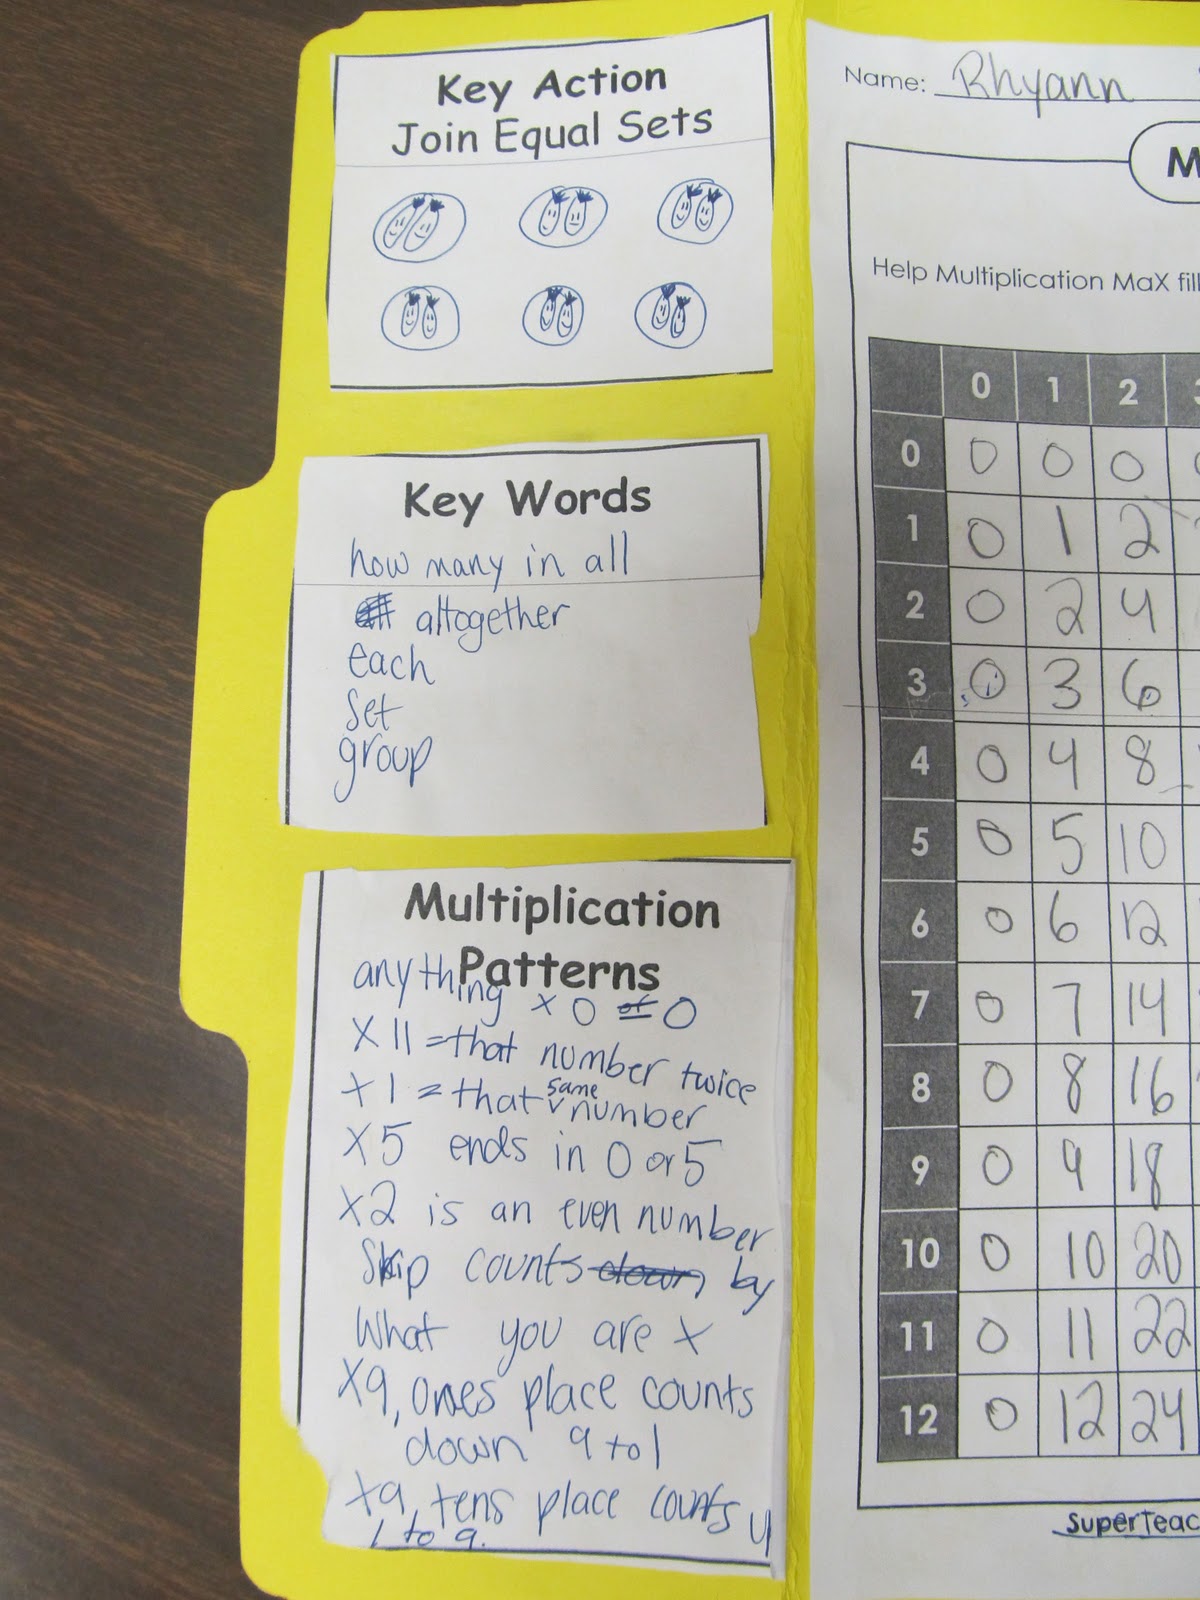 Key Action
Join Equal Sets
Key Words
how many in all
altogether
each
set
group
Multiplication
Patterns
anything x 0 = 0
X 11 = that number twice
x 1 = that same number
X5 ends in 0 or 5
X2 is an even number
Skip counts down by
What you are x
X9, ones place counts
down 9 to 1
X9, tens place counts
1 to 9.
Name: Rhyann
M
Help Multiplication MaX fill
0 1 2
0 0 0 0
1 0 1 2
2 0 2 4
3 0 3 6
4 0 4 8
5 0 5 10
6 0 6 12
7 0 7 14
8 0 8 16
9 0 9 18
10 0 10 20
11 0 11 22
12 0 12 24
SuperTeac